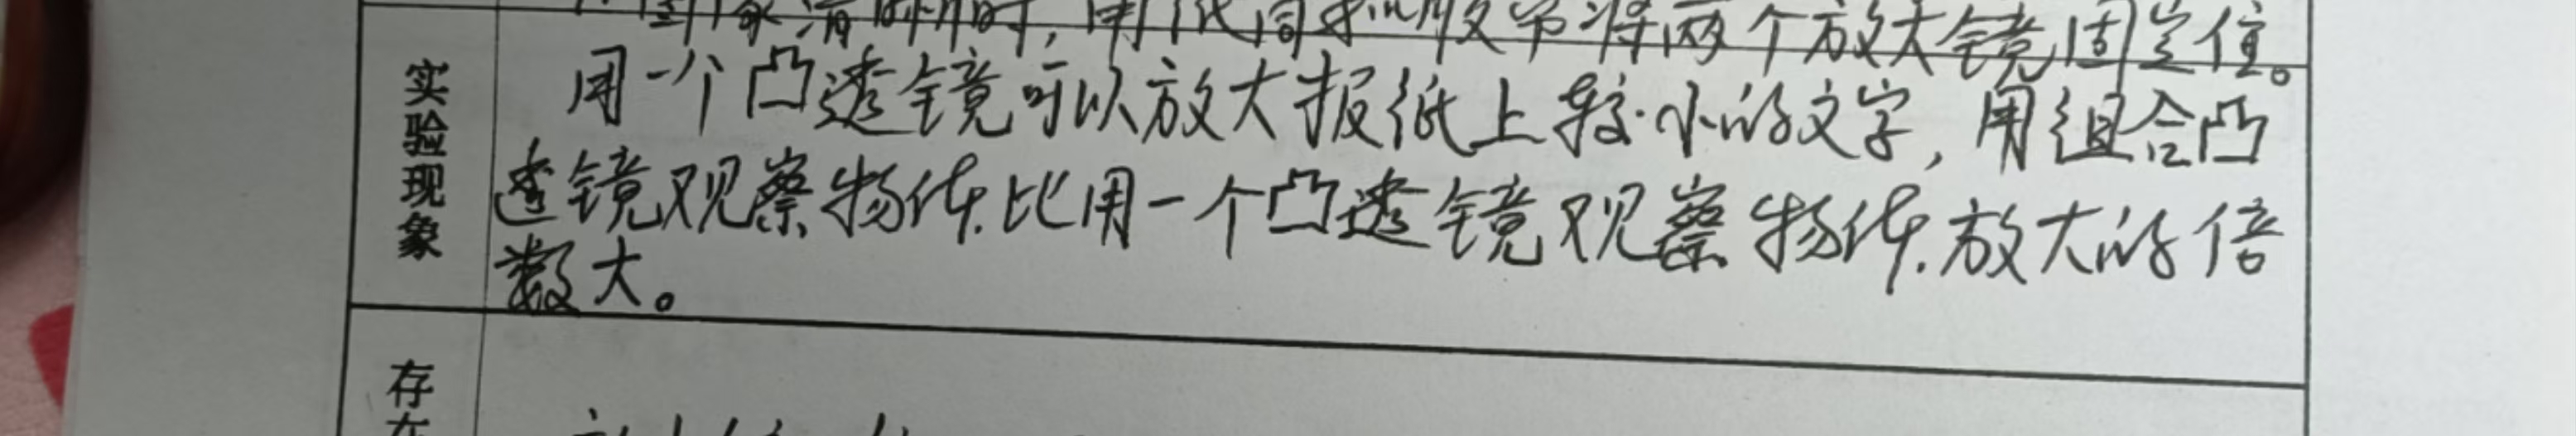 图象清晰时,用纸筒和胶带将两个放大镜固定住。
实验现象
用一个凸透镜可以放大报纸上较小的文字,用组合凸
透镜观察物体.比用一个凸透镜观察物体.放大的倍
数大。
存在